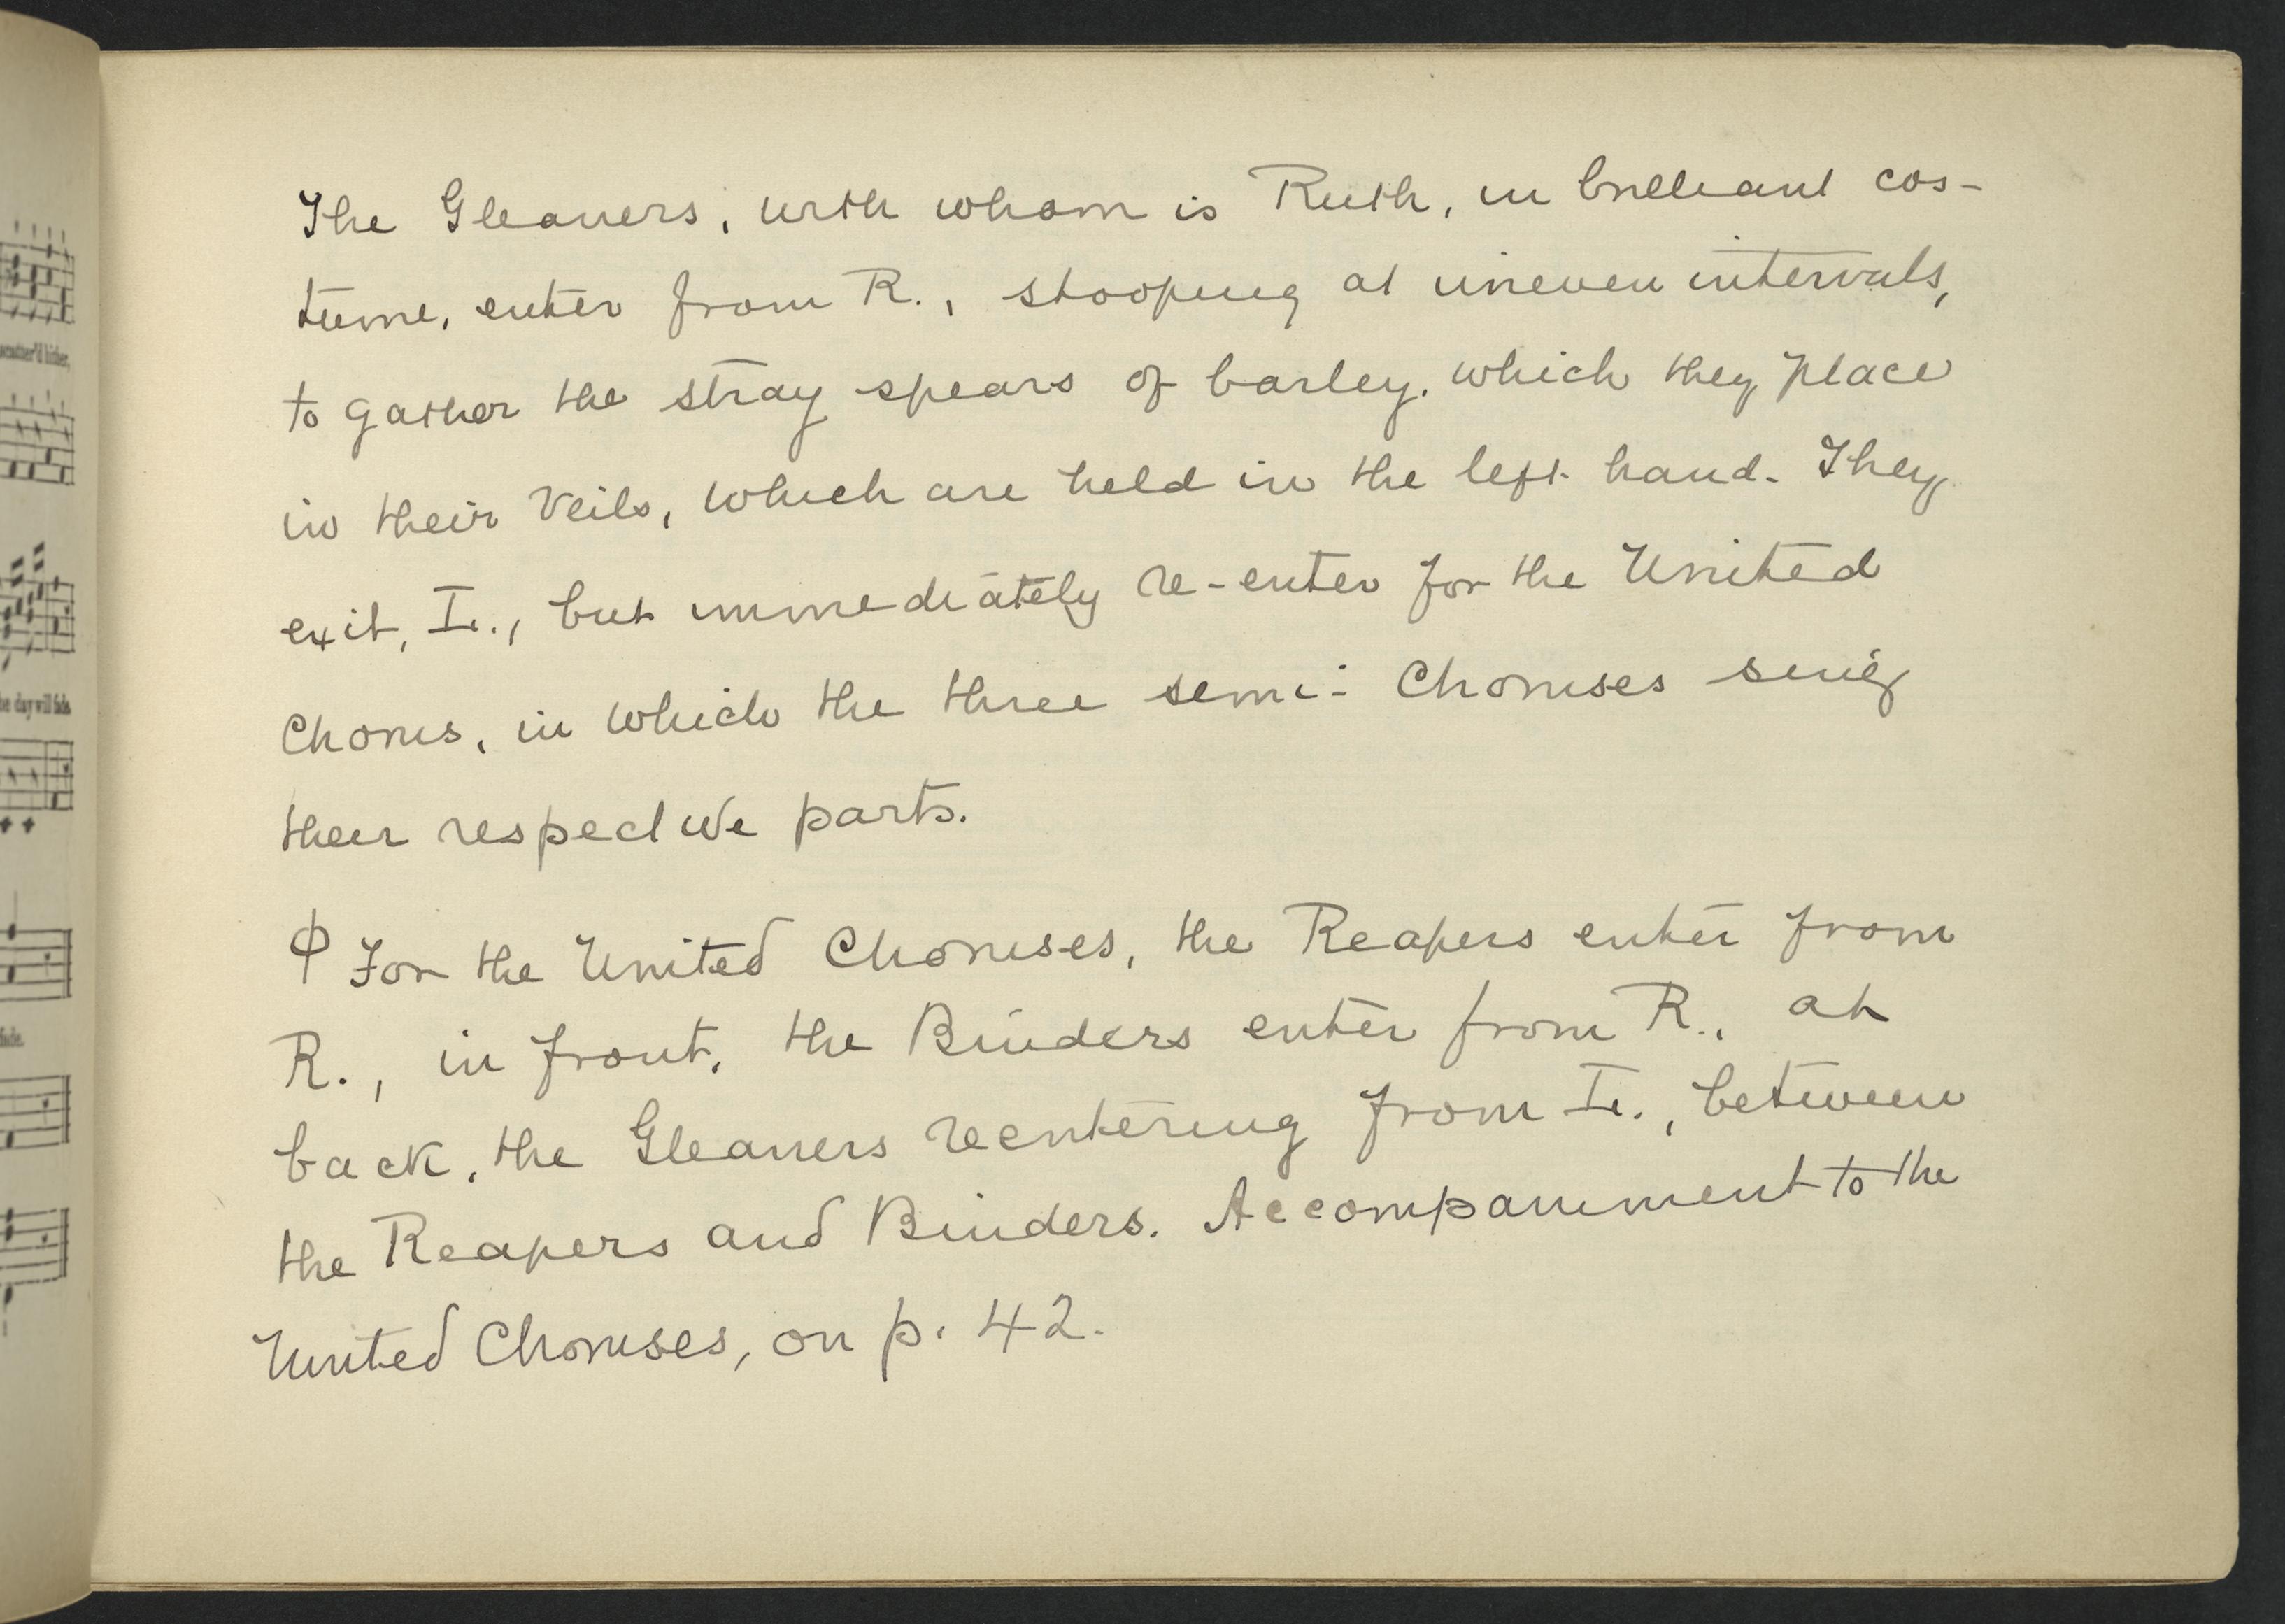 The Gleaners, with whom is Ruth, in brilliant cos-
tume, enter from R., stooping at uneven intervals,
to gather the stray spears of barley. which they place
in their veils, which are held in the left hand. They
exit, L., but immediately re-enter for the United
Chorus, in which the three semi-Choruses sing
their respective parts.
ϕ For the United Choruses, the Reapers enter from
R., in front, the Binders enter from R., at
back, the Gleaners reentering from L., between
the Reapers and Binders. Accompaniment to the
United Choruses, on p. 42.
scatter'd hither,
he day will fade.
fade.